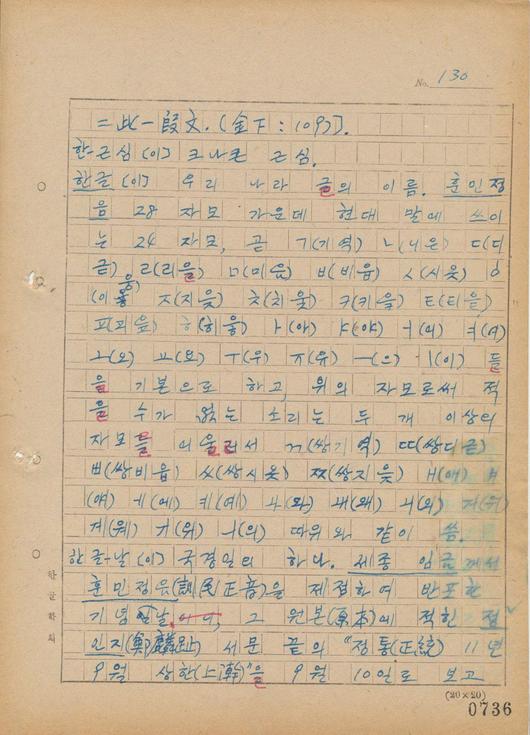 No. 130
= 此一段文. (金下 : 109).
한-근심 [이] 크나큰 근심.
한글 [이] 우리 나라 글의 이름. 훈민정
음 28 자모 가운데 현대 말에 쓰이
는 24 자모, 곧 ㄱ(기역) ㄴ(니은) ㄷ(디
귿) ㄹ(리을) ㅁ(미음) ㅂ(비읍) ㅅ(시옷) ㅇ
(이응) ㅈ(지읒) ㅊ(치읓) ㅋ(키읔) ㅌ(티읕)
ㅍ(피읖) ㅎ(히읗) ㅏ(아) ㅑ(야) ㅓ(어) ㅕ(여)
ㅗ(오) ㅛ(요) ㅜ(우) ㅠ(유) ㅡ(으) ㅣ(이) 들
을 기본으로 하고, 위의 자모로써 적
을 수가 없는 소리는 두 개 이상의
자모를 어울러서 ㄲ(쌍기역) ㄸ(쌍디귿)
ㅃ(쌍비읍) ㅆ(쌍시옷) ㅉ(쌍지읒) ㅐ(애) ㅒ
(얘) ㅔ(에) ㅖ(예) ㅘ(와) ㅙ(왜) ㅚ(외) ㅝ(워)
ㅞ(웨) ㅟ(위) ㅢ(의) 따위와 같이 씀.
한글-날 [이] 국경일의 하나. 세종 임금께서
훈민정음(訓民正音)을 제정하여 반포한
기념날, 그 원본(原本)에 적힌 정
인지(鄭麟趾) 서문 끝의 "정통(正統) 11년
9월 상한(上澣)"을 9월 10일로 보고
한글학회
(20×20)
0736